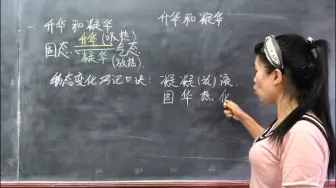 一 升华和凝华
升华和凝华
升华(吸热)
固态: 气态.
凝华(放热)
物态变化巧记口诀: 凝凝(放)液.
固华热化